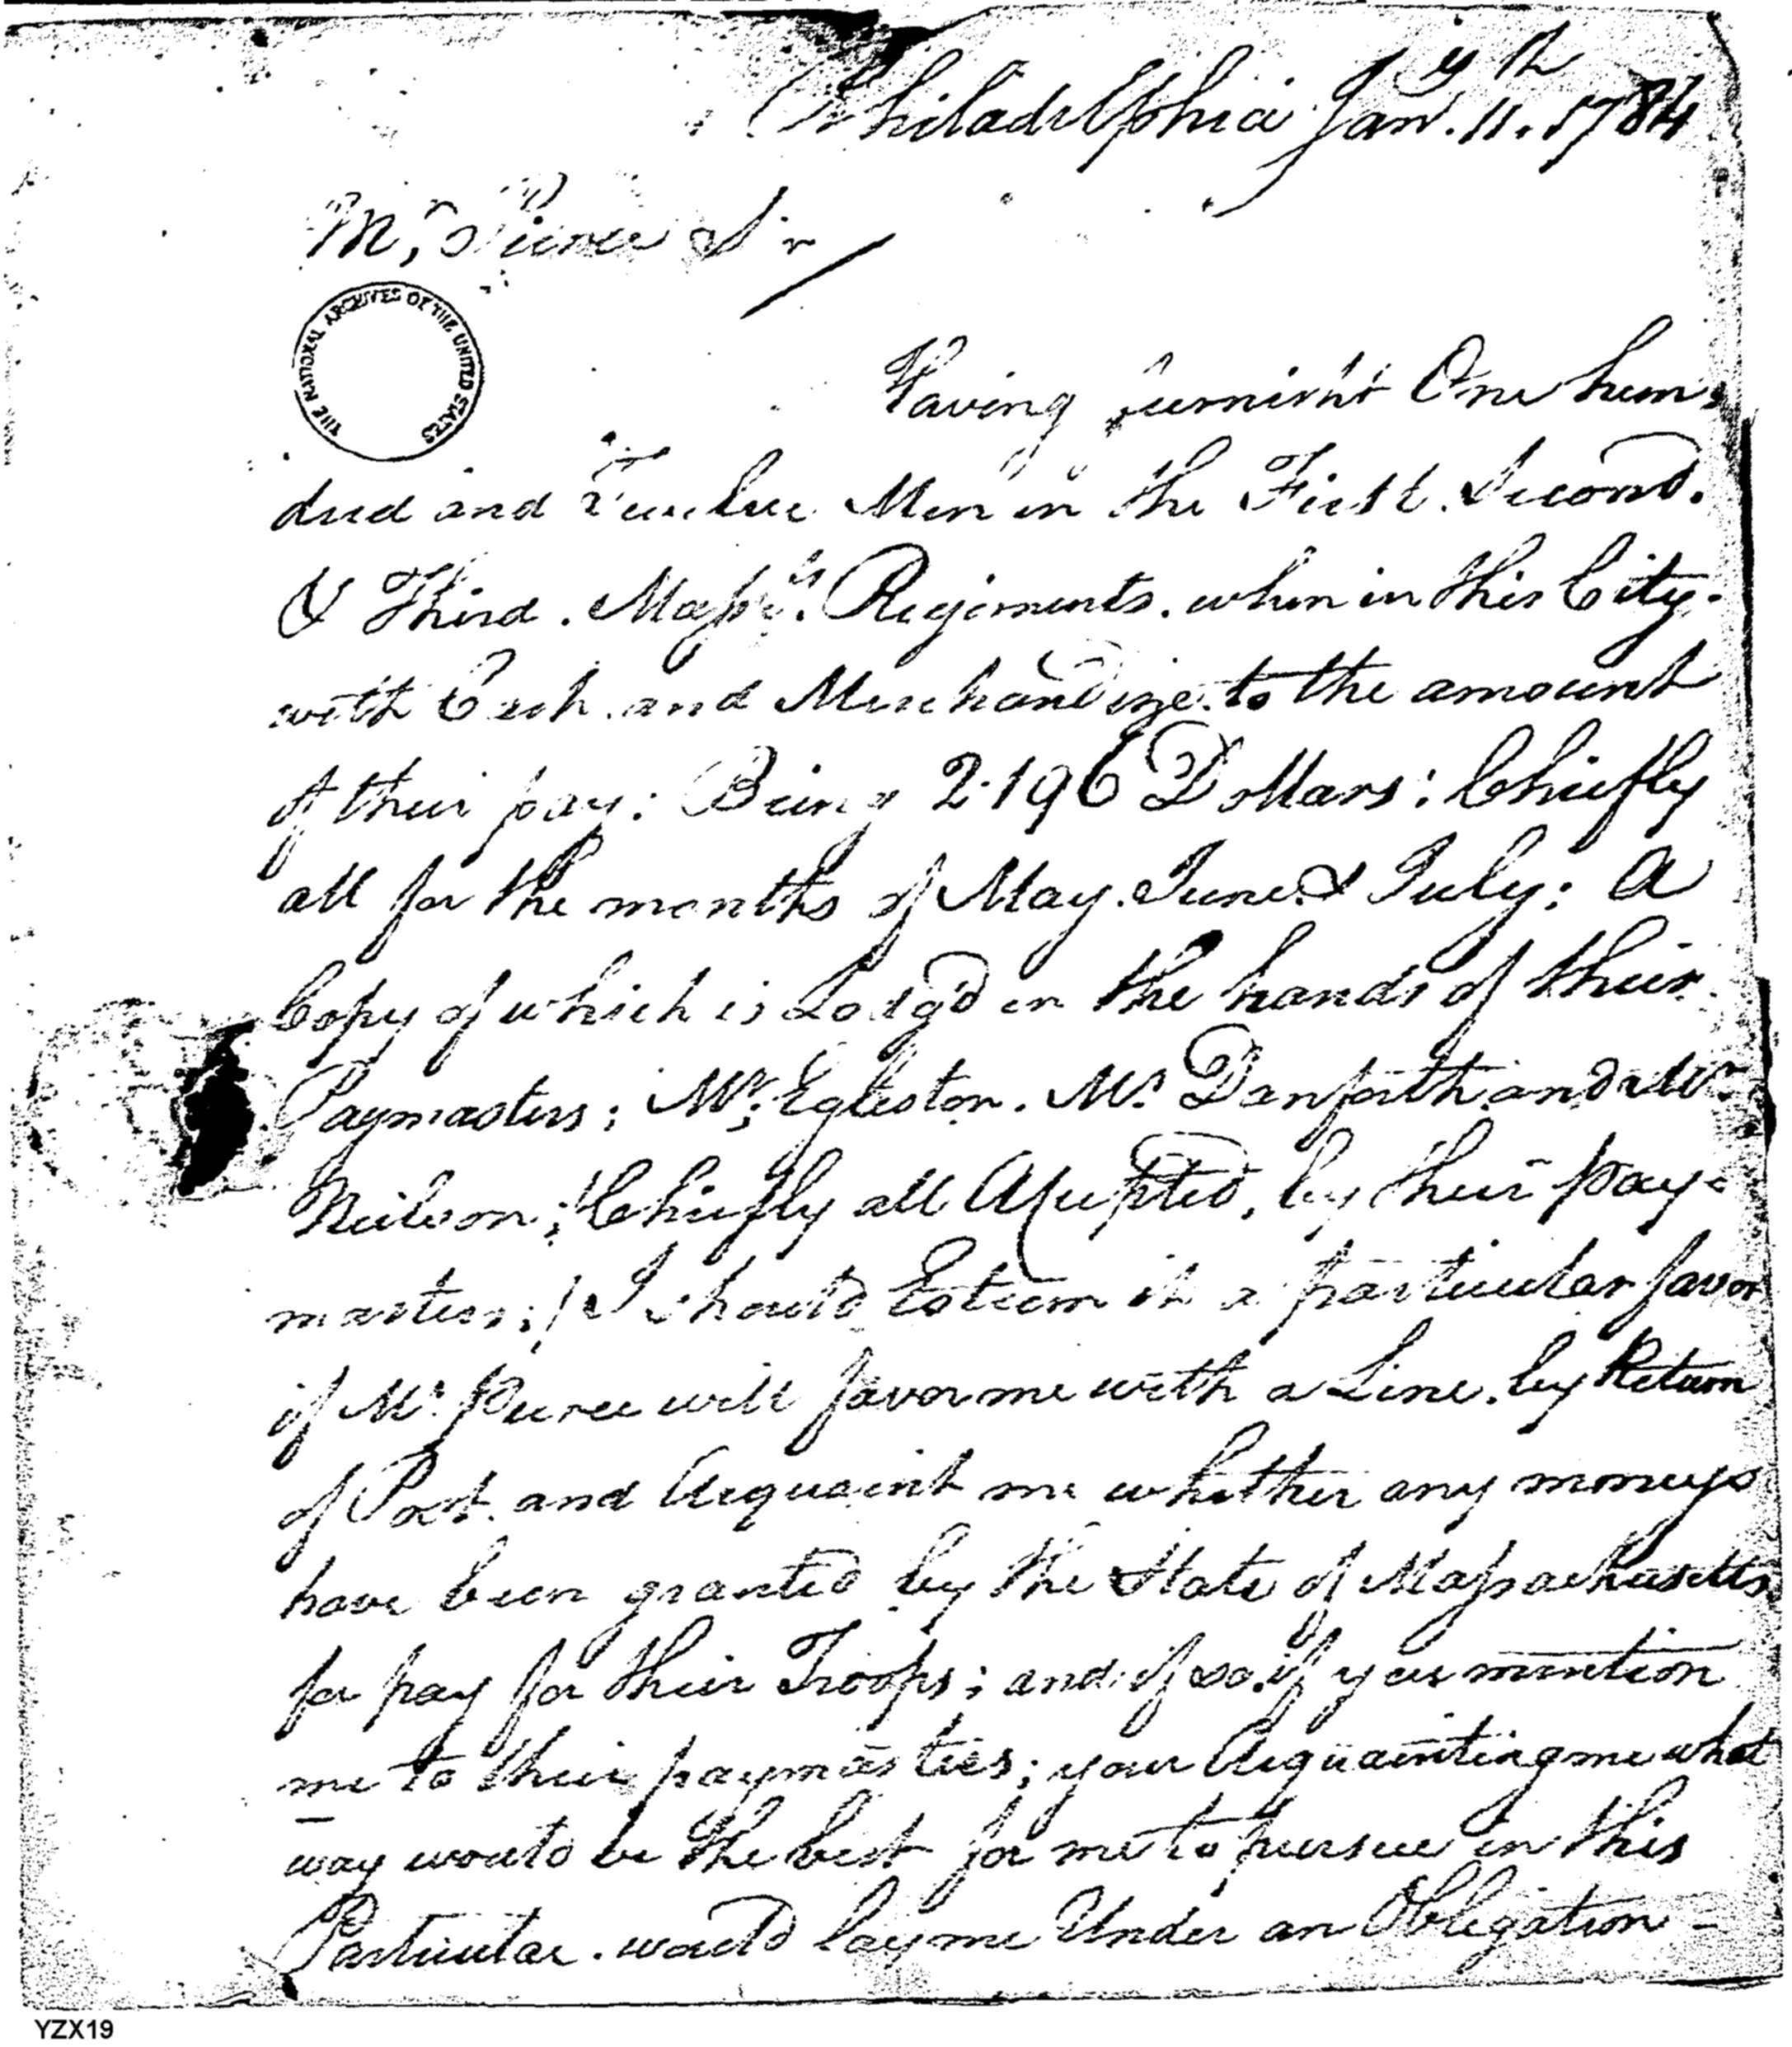 Philadelphia Jany. 11th. 1784
Mr. Pierce Sr
THE NATIONAL ARCHIVES OF THE UNITED STATES
Having furnisht One hun,
dred and Twelve Men in the First. Second.
& Third. Massts. Regiments. when in this City.
with Cash and Merchandize. to the amount
of their pay: Being 2.196 Dollars: Chiefly
all for the months of May. June. & July: A
Copy of which is Lodg'd in the hands of their
Paymasters; Mr. Egleston. Mr. Danforth and Mr.
Neilson; Chiefly all Assepted, by their pay=
masters; I should Esteem it a particular favor
if Mr. Pierce will favor me with a Line. by Return
of Post. and Acquaint me whether any moneys
have been granted by the State of Massachusetts
for pay for their Troops; and if so. if you mention
me to their paymasters; your Acquainting me what
way would be the best for me to pursue in this
Particular. would lay me Under an Obligation -
YZX19